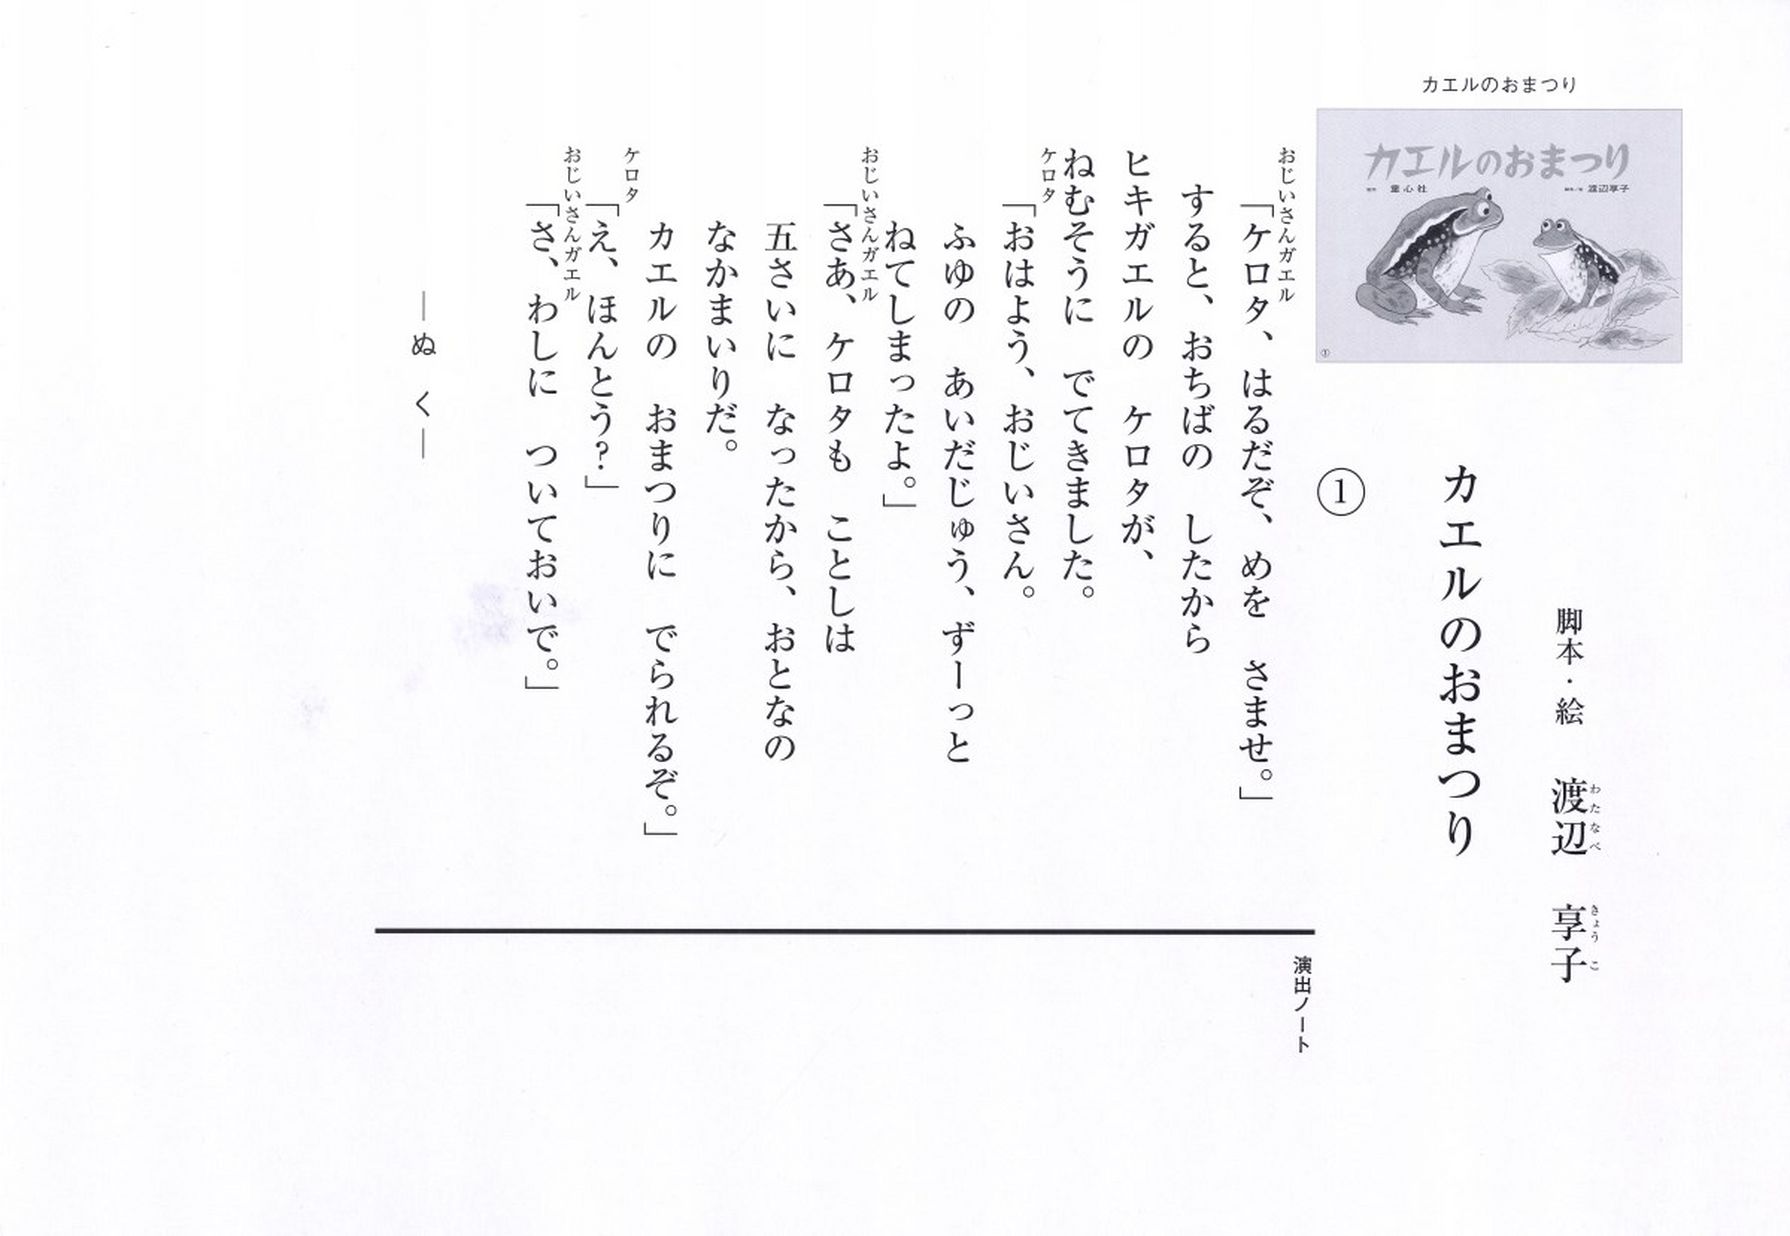 カエルのおまつり
カエルのおまつり
童心社
渡辺享子
①
脚本・絵　渡辺　享子
わたなべ　きょうこ
カエルのおまつり
①
おじいさんガエル
「ケロタ、はるだぞ、めを　さませ。」
すると、おちばの　したから
ヒキガエルの　ケロタが、
ねむそうに　でてきました。
ケロタ
「おはよう、おじいさん。
ふゆの　あいだじゅう、ずーっと
ねてしまったよ。」
おじいさんガエル
「さあ、ケロタも　ことしは
五さいに　なったから、おとなの
なかまいりだ。
カエルの　おまつりに　でられるぞ。」
ケロタ
「え、ほんとう？」
おじいさんガエル
「さ、わしに　ついておいで。」
―ぬ　く―
演出ノート